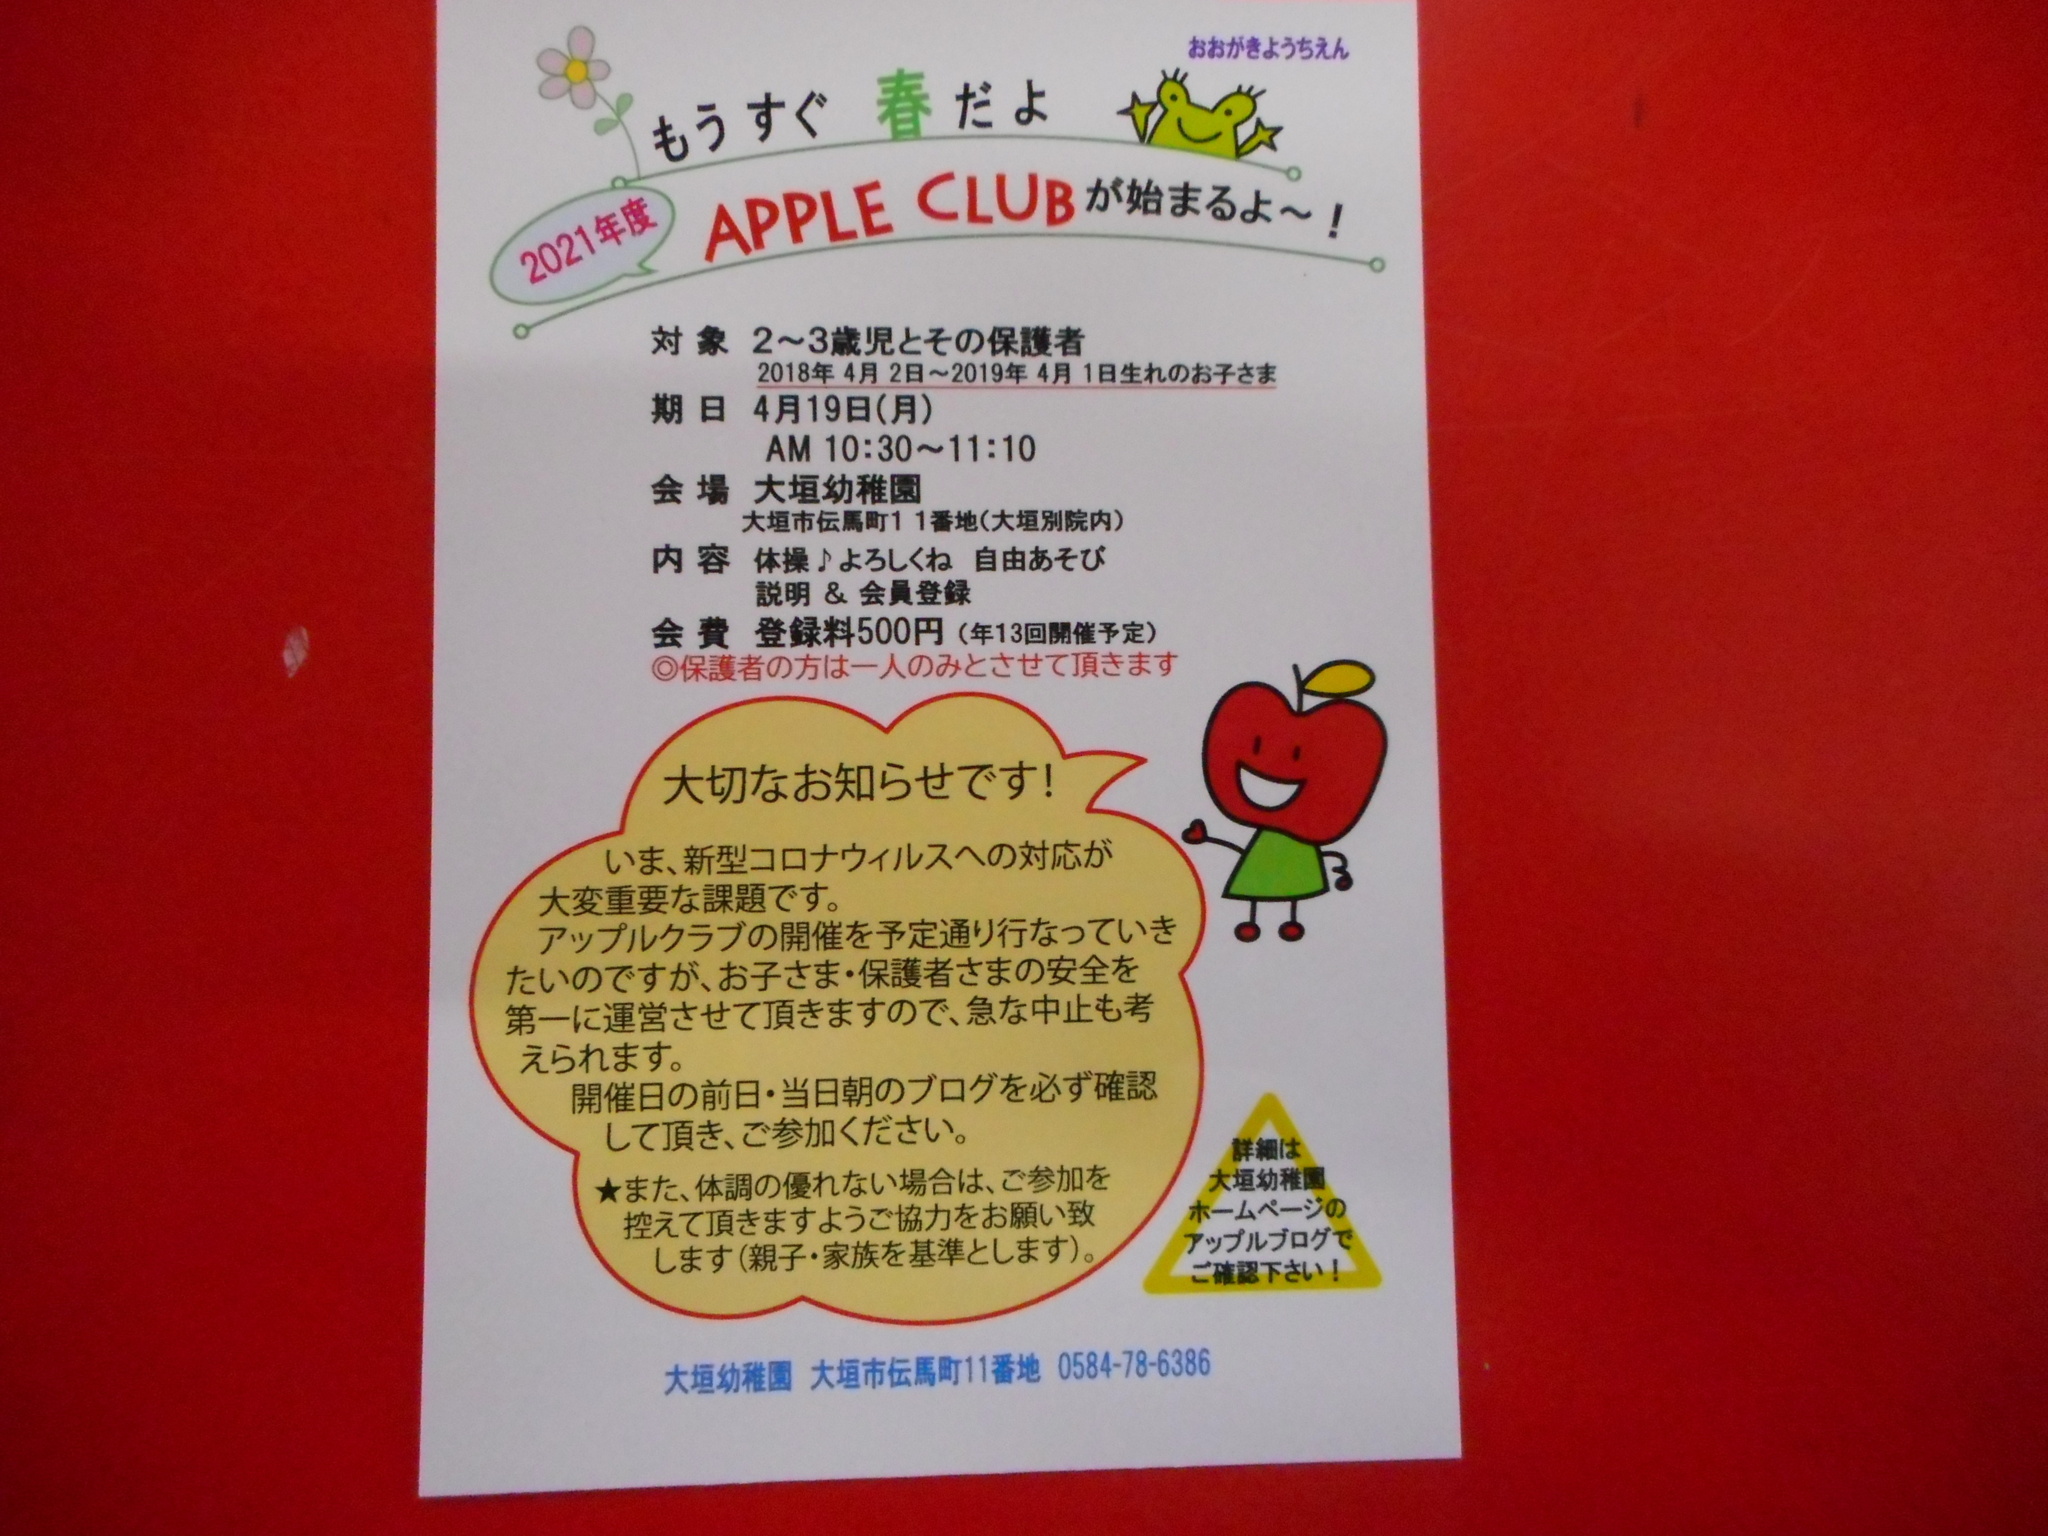 おおがきようちえん
もうすぐ 春だよ
2021年度
APPLE CLUBが始まるよ～!
対象 2～3歳児とその保護者
2018年 4月 2日～2019年 4月 1日生れのお子さま
期日 4月19日(月)
AM 10:30～11:10
会場 大垣幼稚園
大垣市伝馬町11番地(大垣別院内)
内容 体操♪よろしくね 自由あそび
説明 & 会員登録
会費 登録料500円 (年13回開催予定)
◎保護者の方は一人のみとさせて頂きます
大切なお知らせです!
いま、新型コロナウィルスへの対応が
大変重要な課題です。
アップルクラブの開催を予定通り行なっていき
たいのですが、お子さま・保護者さまの安全を
第一に運営させて頂きますので、急な中止も考
えられます。
開催日の前日・当日朝のブログを必ず確認
して頂き、ご参加ください。
★また、体調の優れない場合は、ご参加を
控えて頂きますようご協力をお願い致
します(親子・家族を基準とします)。
詳細は
大垣幼稚園
ホームページの
アップルブログで
ご確認下さい!
大垣幼稚園 大垣市伝馬町11番地 0584-78-6386